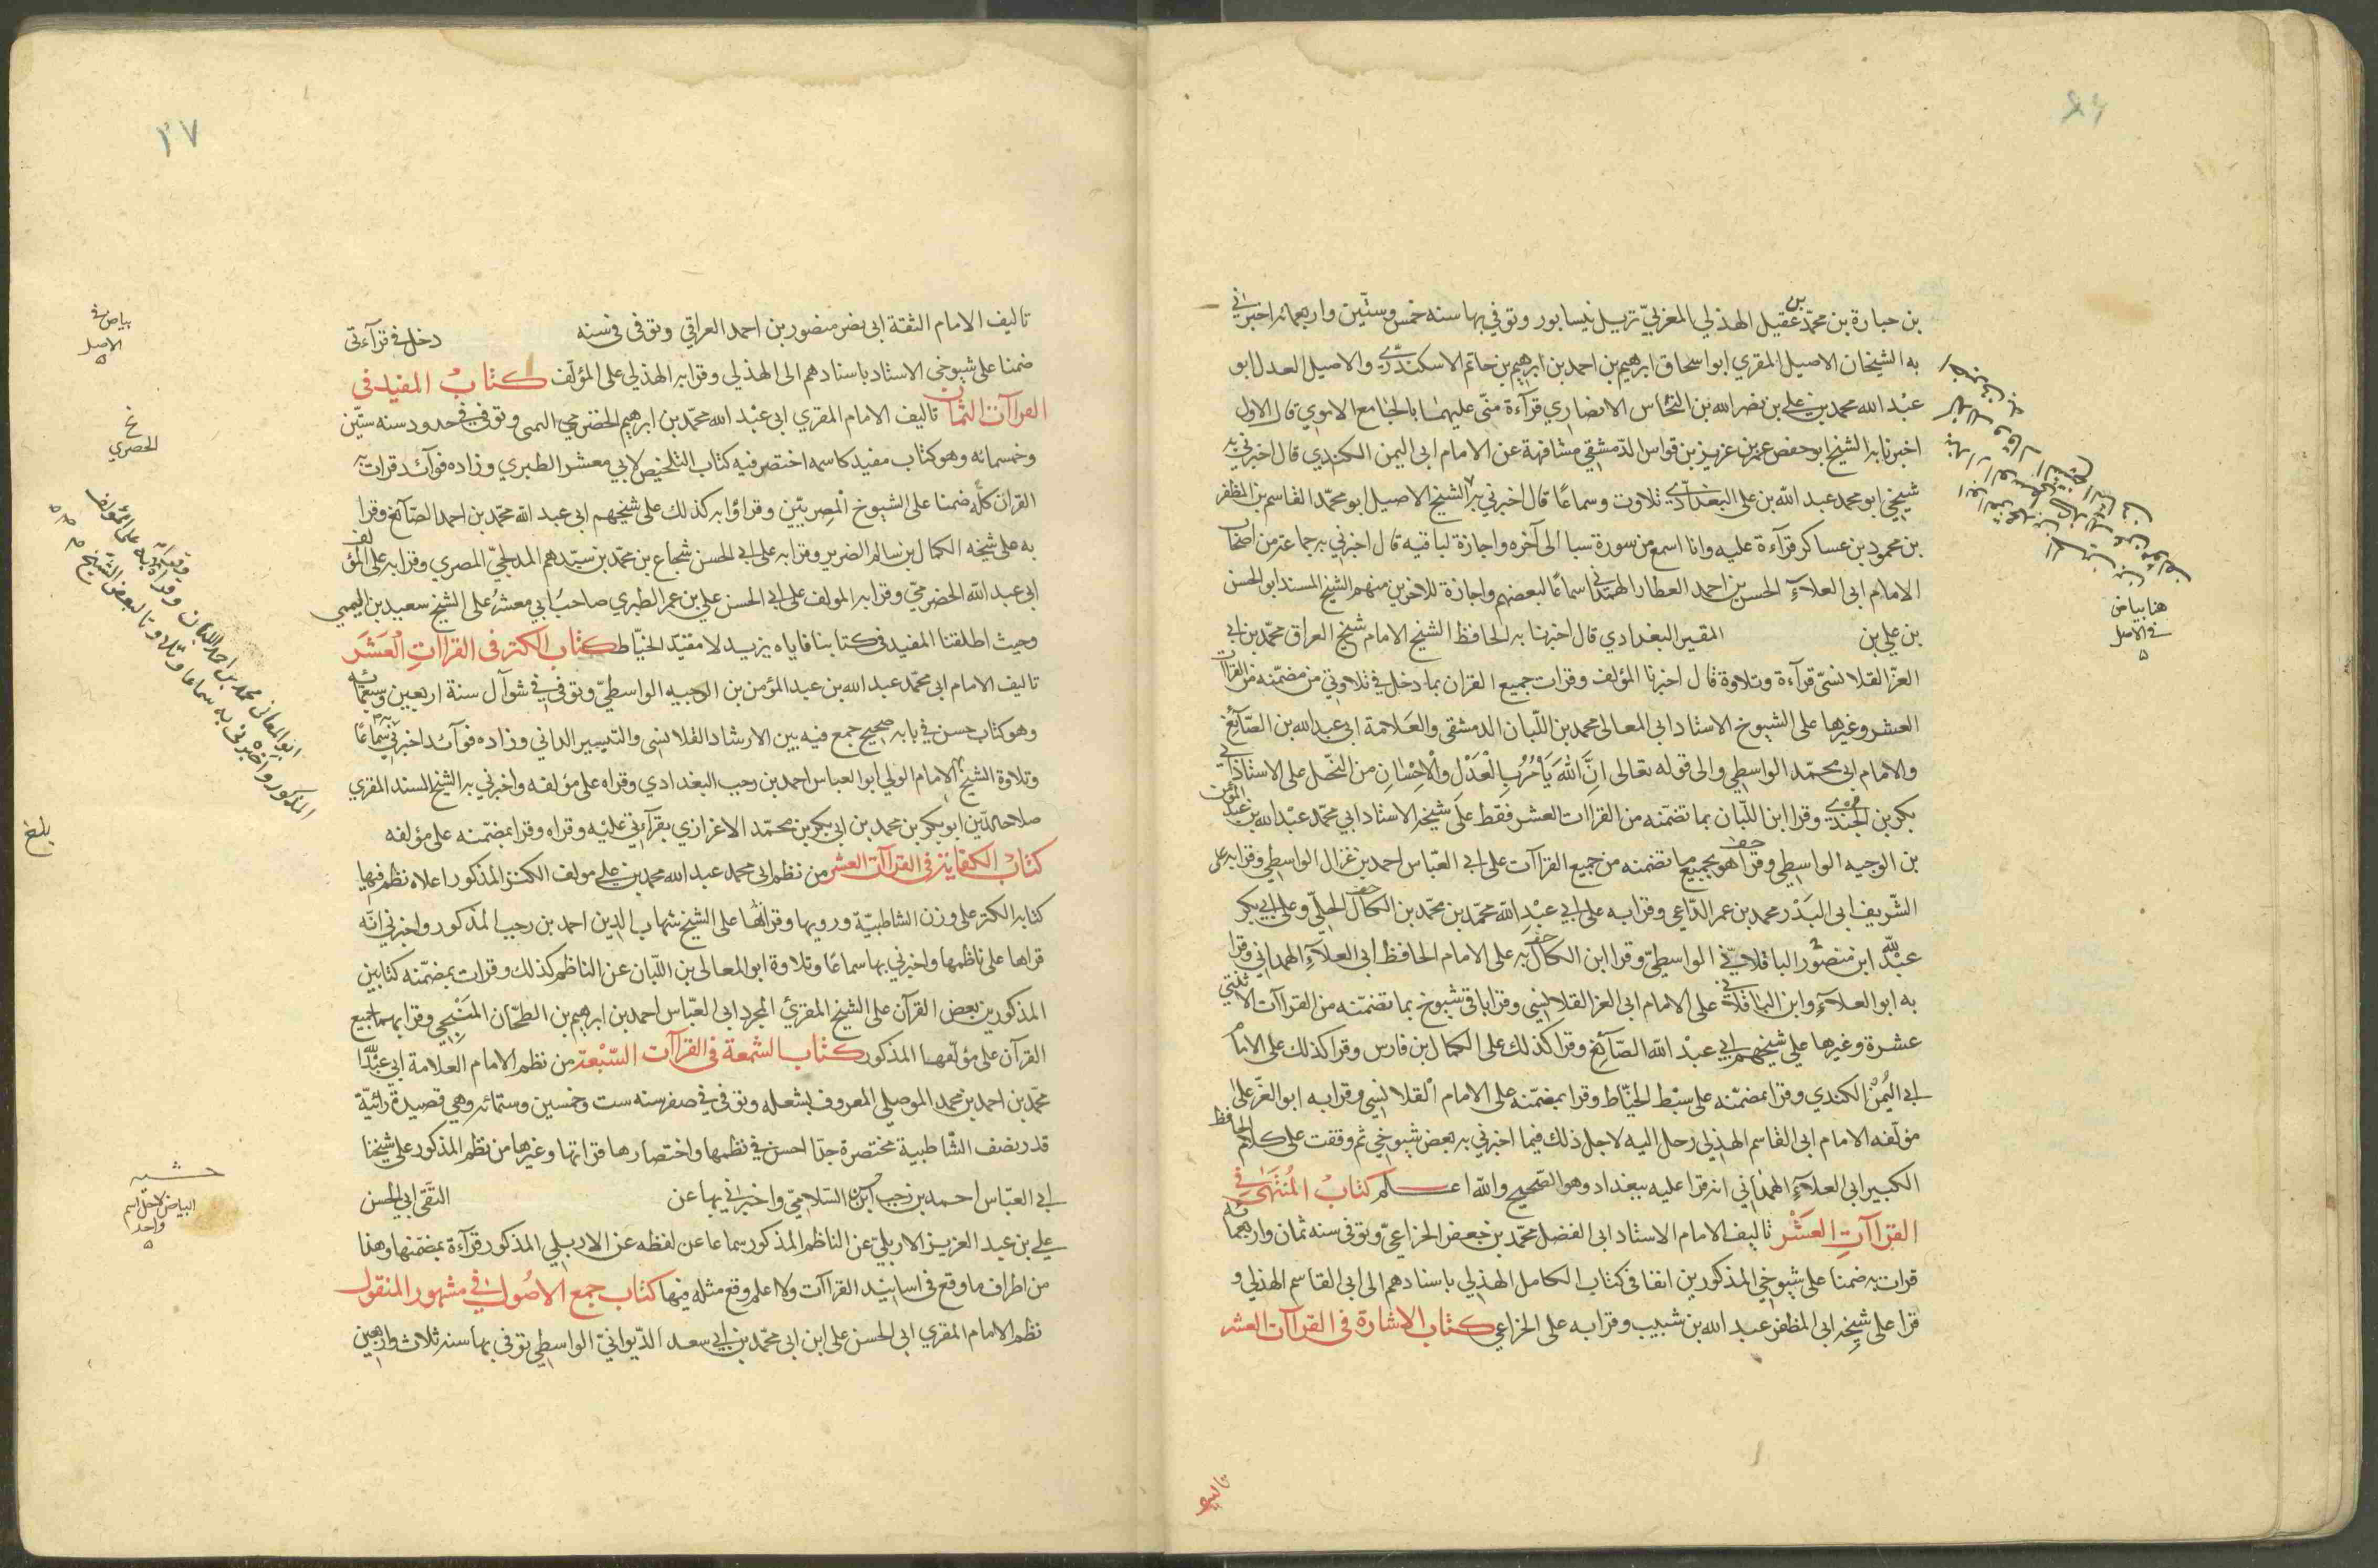 بن جبارة بن محمد بن عقيل الهذلي المغربي نزيل نيسابور وتوفي بها سنه خمس وستين واربعمائه اخبراني
به الشيخان الاصيل المقري ابو اسحاق ابرهيم بن احمد بن ابرهيم بن حاتم الاسكندري والاصيل العدل ابو
عبد الله محمد بن علي بن نصر الله بن النحاس الانصاري قرآءة مني عليهما بالجامع الاموي قال الاول
اخبرنا به الشيخ ابو حفص عمر بن عزيز بن قواس الدمشقي مشافهة عن الامام ابي اليمن الكندي قال اخبرني به
شيخي ابو محمد عبد الله بن علي البغدادي تلاوت وسماعا قال اخبرني به الشيخ الاصيل ابو محمد القاسم بن المظفر
بن محمود بن عساكر قرآءة عليه وانا اسمع من سورة سبا الى آخره واجازة لباقيه قال اخبرني به جماعة من اصحاب
الامام ابي العلآء الحسن بن احمد العطار الهمداني سماعا لبعضهم واجازة للاخرين منهم الشيخ المسند ابو الحسن
بن علي بن المقير البغدادي قال اخبرنا به الحافظ الشيخ الامام شيخ العراق محمد بن ابي
العز القلانسي قرآءة وتلاوة قال اخبرنا المؤلف وقرات جميع القران بما دخل في تلاوتي من مضمنه من القراات
العشر وغيرها على الشيوخ الاستاد ابي المعالي محمد بن اللبان الدمشقي والعلامة ابي عبد الله بن الصآئغ
والامام ابي محمد الواسطي والى قوله تعالى ان الله يأمر بالعدل والاحسان من النحل على الاستاذ ابي
بكر بن الجندي وقرا ابن اللبان بما تضمنه من القراات العشر فقط على شيخه الاستاد ابي محمد عبد الله بن عبد المؤمن
بن الوجيه الواسطي وقرا هو بجميع ما تضمنه من جميع القراآت على ابي العباس احمد بن غزال الواسطي وقرا به على
الشريف ابي البدر محمد بن عمر الداعي وقرا به على ابي عبد الله محمد بن محمد بن الكال الحلي وعلى ابي بكر
عبد الله ابن منصور الباقلاني الواسطي وقرا ابن الكال به على الامام الحافظ ابي العلآء الهمداني وقرا
به ابو العلآء وابن الباقلاني على الامام ابي العز القلانسي وقرا باقي شيوخي بما تضمنه من القراآت الاثنتي
عشرة وغيرها على شيخهم ابي عبد الله الصآئغ وقرا كذلك على الكمال بن فارس وقرا كذلك على الامام
ابي اليمن الكندي وقرا بمضمنه على سبط الخياط وقرا بمضمنه على الامام القلانسي وقرا به ابو العز على
مؤلفه الامام ابي القاسم الهذلي رحل اليه لاجل ذلك فيما اخبرني به بعض شيوخي ثم وقفت على كلام الحافظ
الكبير ابي العلآء الهمداني انه قرا عليه ببغداد وهو الصحيح والله اعلم كتاب المنتهى في
القراآت العشر تاليف الامام الاستاد ابي الفضل محمد بن جعفر الخزاعي وتوفي سنه ثمان واربعمائه
قرات به ضمنا على شيوخي المذكورين انفا في كتاب الكامل الهذلي باسنادهم الى ابي القاسم الهذلي و
قرا على شيخه ابي المظفر عبد الله بن شبيب وقرا به على الخزاعي كتاب الاشارة في القراآت العشر
هنا بياض
في الاصل
تاليف
تاليف الامام الثقة ابي نصر منصور بن احمد العراقي وتوفي في سنه دخل في قرآءتي
ضمنا على شيوخي الاستاد باسنادهم الى الهذلي وقرا به الهذلي على المؤلف كتاب المفيد في
القراآت الثمان تاليف الامام المقري ابي عبد الله محمد بن ابرهيم الحضرمي اليمني وتوفي في حدود سنه ستين
وخمسمائه وهو كتاب مفيد كاسمه اختصر فيه كتاب التلخيص لابي معشر الطبري وزاده فوآئد قرات به
القران كله ضمنا على الشيوخ المصريين وقراؤا به كذلك على شيخهم ابي عبد الله محمد بن احمد الصآئغ وقرا
به على شيخه الكمال بن سالم الضرير وقرا به على ابي الحسن شجاع بن محمد بن سيدهم المدلجي المصري وقرا به على المؤلف
ابي عبد الله الحضرمي وقرا به المولف على ابي الحسن علي بن عمر الطبري صاحب ابي معشر على الشيخ سعيد بن اليمني
وحيث اطلقنا المفيد في كتابنا فاياه يزيد لا مفيد الخياط كتاب الكنز في القراات العشر
تاليف الامام ابي محمد عبد الله بن عبد المؤمن بن الوجيه الواسطي وتوفي في شوآل سنة اربعين وسبعمائه
وهو كتاب حسن في بابه صحيح جمع فيه بين الارشاد القلانسي والتيسير الداني وزاده فوآئد اخبرني به سماعا
وتلاوة الشيخ الامام الولي ابو العباس احمد بن رجب البغدادي وقراه على مؤلفه واخبرني به الشيخ المسند المقري
صلاح الدين ابو بكر بن محمد بن ابي بكر بن محمد الاغزازي بقرآءتي عليه وقراه وقرا بمضمنه على مؤلفه
كتاب الكفاية في القراآت العشر من نظم ابي محمد عبد الله محمد بن علي مولف الكنز المذكور اعلاه نظم فيها
كتابه الكنز على وزن الشاطبية ورويها وقراتها على الشيخ شهاب الدين احمد بن رجب المذكور واخبرني انه
قراها على ناظمها واخبرني بها سماعا وتلاوة ابو المعالي بن اللبان عن الناظم كذلك وقرات بمضمنه كتابين
المذكورين بعض القرآن على الشيخ المقرئ المجرد ابي العباس احمد بن ابرهيم بن الطحان المنبجي وقرا بهما جميع
القرآن على مؤلفهما المذكور كتاب الشمعة في القراآت السبعة من نظم الامام العلامة ابي عبد الله
محمد بن احمد بن محمد الموصلي المعروف بشعله وتوفي في صفر سنه ست وخمسين وستمائه وهي قصيدة رائية
قدر نصف الشاطبية مختصرة جدا احسن في نظمها واختصارها قراتها وغيرها من نظم المذكور على شيخنا
ابي العباس احمد بن رجب ابن السلامي واخبراني بها عن التقي ابي الحسن
علي بن عبد العزيز الاربلي عن الناظم المذكور سماعا عن لفظه عن الاربلي المذكور قرآءة بمضمنها وهذا
من اطراف ما وقع في اسانيد القراآت ولا اعلم وقع مثله فيها كتاب جمع الاصول في مشهور المنقول
نظم الامام المقري ابي الحسن علي ابن ابي محمد بن ابي سعد الديواني الواسطي توفي بها سنه ثلاث واربعين
٢٧
بياض في
الاصل
نخ
الحصري
ابو المعالي محمد بن احمد اللبان وقراه به على
المذكور واخبرني به سماعا وتلاوتا لبعض الشيخ
بلغ
البياض لاجل اسم
واحد